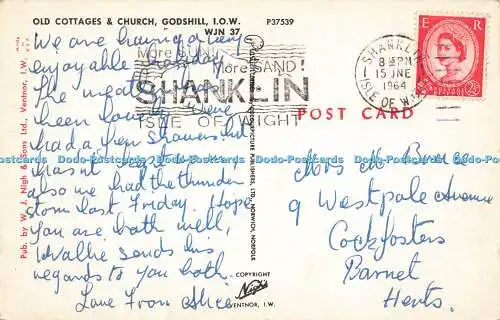 OLD COTTAGES & CHURCH, GODSHILL, I.O.W.
P37539
WJN 37
We are having a very
enjoyable holiday
The weather has
been lovely we have
had a few showers but
hasnt been cold
also we had the thunder
storm last Friday. Hope
you are both well,
Wallie sends his
regards to you both
Love From Alice
More SUN!
More SAND!
SHANKLIN
ISLE OF WIGHT
SHANKLIN
8 PM
15 JNE
1964
ISLE OF WIGHT
E R
POSTAGE REVENUE
2½D
POST CARD
Mrs M
9 Westpole Avenue
Cockfosters
Barnet
Herts.
Pub. by W. J. Nigh & Sons Ltd., Ventnor, I.W.
PUBLISHERS, LTD., NORWICH, NORFOLK
COPYRIGHT
Nigh
VENTNOR, I.W.
Dodo-Postcards Dodo-Postcards Dodo-Postcards Dodo-Postcards Dodo-Postcards Dodo-Postcards